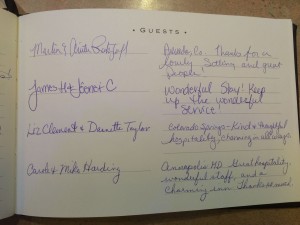 • GUESTS •
Martin & Anita
Boulder, Co Thanks for a
lovely setting and great
people
James H & Joanet C
Wonderful Stay! Keep
up the wonderful
service!
Liz Clement & Danette Taylor
Colorado Springs - Kind & thoughtful
hospitality, charming in all ways
Carol & Mike Harding
Annapolis MD Great hospitality,
wonderful staff, and a
charming inn. Thanks so much!